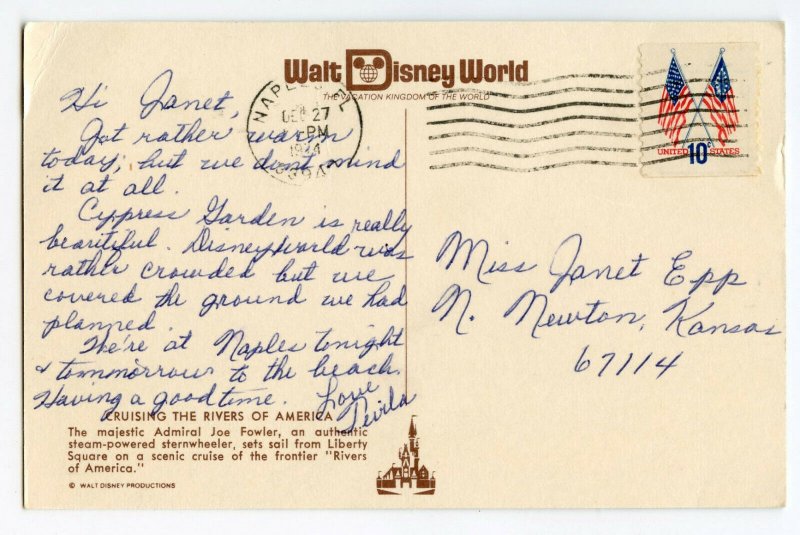 Walt Disney World
THE VACATION KINGDOM OF THE WORLD
NAPLES, FL
DEC 27
PM
1974
UNITED 10c STATES
Hi Janet,
Got rather warm
today, but we don't mind
it at all.
Cypress Garden is really
beautiful. Disneyworld was
rather crowded but we
covered the ground we had
planned.
We're at Naples tonight
& tommorrow to the beach.
Having a good time. Love
Miss Janet Epp
N. Newton, Kansas
67114
CRUISING THE RIVERS OF AMERICA
The majestic Admiral Joe Fowler, an authentic
steam-powered sternwheeler, sets sail from Liberty
Square on a scenic cruise of the frontier "Rivers
of America."
© WALT DISNEY PRODUCTIONS